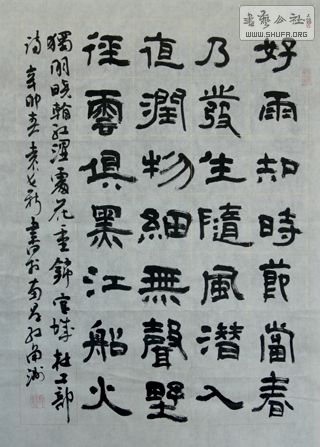 書藝公社
WWW.SHUFA.ORG
好雨知時節當春
乃發生隨風潛入
亱潤物細無聲野
徑雲俱黑江船火
獨明曉看紅溼處花重錦官城杜工部
詩辛卯春袁書於南昌红角洲